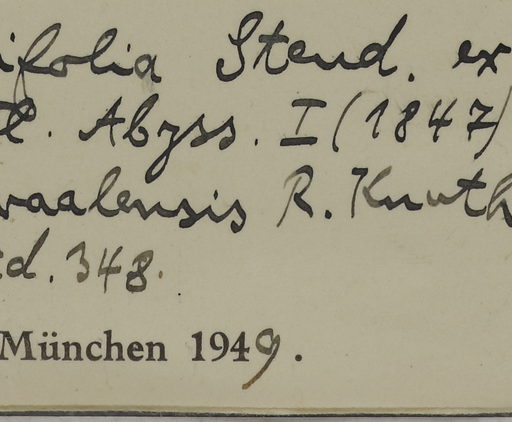 ifolia Steud. ex
Fl. Abyss. I (1847)
vaalensis R. Knuth
td. 348.
München 1949.